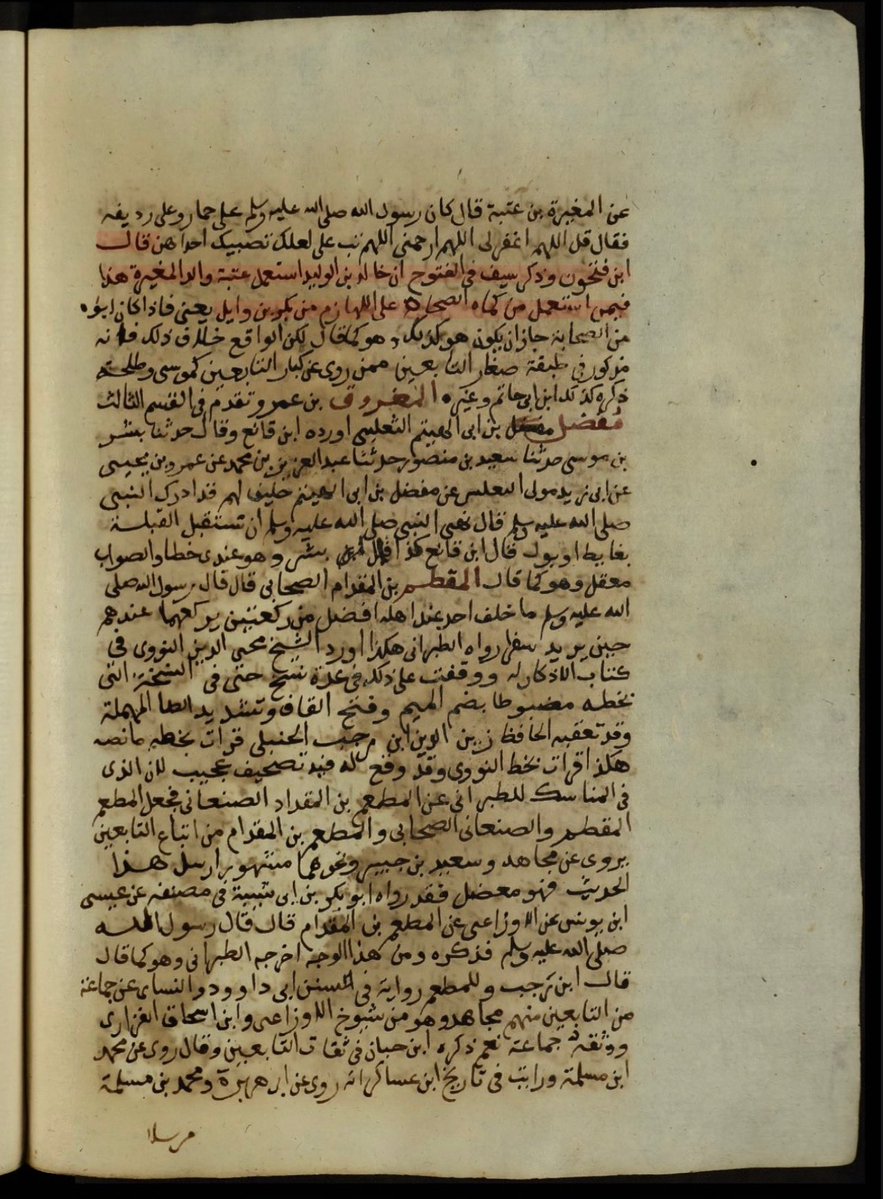 عن المغيرة بن عتبة قال كان رسول الله صلى الله عليه وسلم على حمار وعلي رديفه
فقال قل اللهم اغفر لي اللهم ارحمني اللهم تب علي لعلك تصيبك احداهن قال
ابن فتحون وذكر سيف في الفتوح ان خالد بن الوليد استعمل عتبة والد المغيرة هذا
فيمن استعمل من كماة الصحابة على اللهازم من بكر بن وايل يعني فاذا كان ابوه
من الصحابة جاز ان يكون هو كذلك وهو كما قال لكن الواقع خلاف ذلك فانه
مذكور في طبقة صغار التابعين ممن روى عن كبار التابعين كموسى وطلحة
ذكره كذلك ابن ابي حاتم وغيره المفروق بن عمرو تقدم في القسم الثالث
مفضل بن ابي الهيثم التعلبي اورده ابن قانع وقال حدثنا بشر
بن موسى حدثنا سعيد بن منصور حدثنا عبد العزيز بن محمد عن عمرو بن يحيى
عن ابي زيد مولى التعلبين عن مفضل بن ابي الهيثم حليف لهم قد ادرك النبي
صلى الله عليه وسلم قال نهى النبي صلى الله عليه وسلم ان تستقبل القبلة
بغايط او بول قال ابن قانع كذا قال بشر وهو عندي خطا والصواب
معقل وهو كما قال المقطم بن المقدام الصحابي قال قال رسول الله صلى
الله عليه وسلم ما خلف احد عند اهله افضل من ركعتين يركعهما عندهم
حين يريد سفرا رواه الطبراني هكذا اورد الشيخ محيي الدين النووي في
كتاب الاذكار له ووقفت على ذلك في عدة نسخ حتى في النسخة التي
بخطه مضبوطا بضم الميم وفتح القاف وتشديد الطا المهملة
وقد تعقبه الحافظ زين الدين ابن رجب الحنبلي قرات بخطه ما نصه
هكذا قرات بخط النووي وقد وقع له فيه تصحيف عجيب لان الذي
في المناسك للطبراني عن المطعم بن المقداد الصنعاني فجعل المطعم
المقطم والصنعاني الصحابي والمطعم بن المقدام من اتباع التابعين
يروي عن مجاهد وسعيد بن جبير ونحوهما مشهور ارسل هذا
الحديث فهو معضل فقد رواه ابو بكر بن ابي شيبة في مصنفه عن عيسى
ابن يونس عن الاوزاعي عن المطعم بن المقدام قال قال رسول الله
صلى الله عليه وسلم فذكره ومن هذا الوجه اخرجه الطبراني وهو كما قال
قال ابن رجب وللمطعم رواية في السنن ابي داوود والنساي عن جماعة
من التابعين منهم مجاهد وهو من شيوخ الاوزاعي وابن اسحاق الفزاري
ووثقه جماعة نعم ذكره ابن حبان في ثقات التابعين وقال روى عن محمد
ابن مسلمة ورايت في تاريخ ابن عساكر انه روى عن ابي هريرة ومحمد بن مسلمة
مرسلا